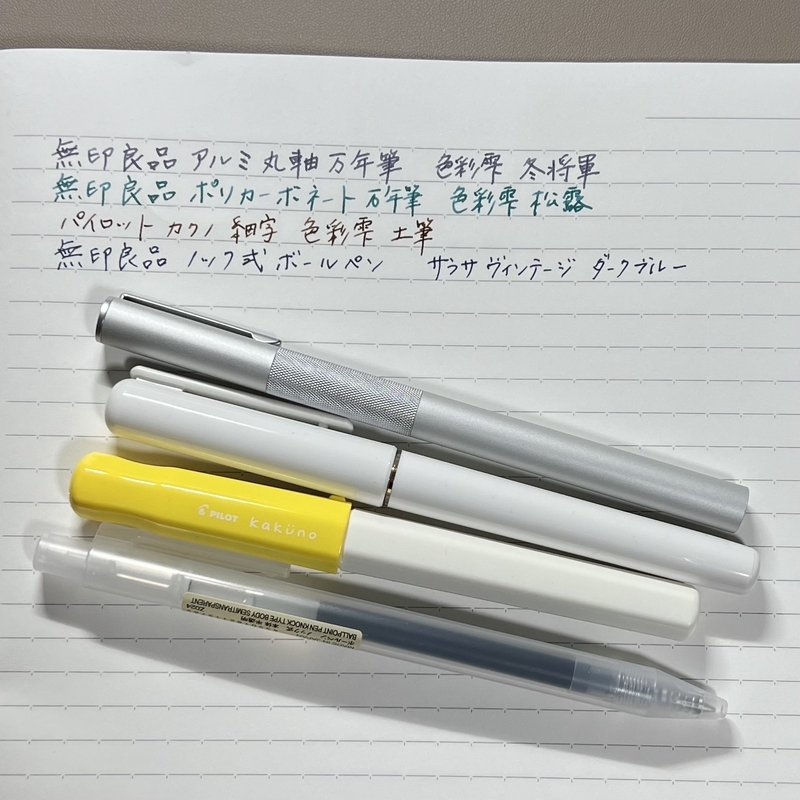 無印良品 アルミ丸軸万年筆 色彩雫 冬将軍
無印良品 ポリカーボネート万年筆 色彩雫 松露
パイロット カクノ 細字 色彩雫 土筆
無印良品 ノック式ボールペン サラサヴィンテージ ダークブルー
PILOT kaküno
2024
BALLPOINT PEN KNOCK TYPE BODY SEMITRANSPARENT
ボールペン ノック式 本体 半透明